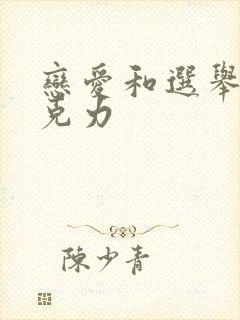 戀愛和選舉
克力
陳少青